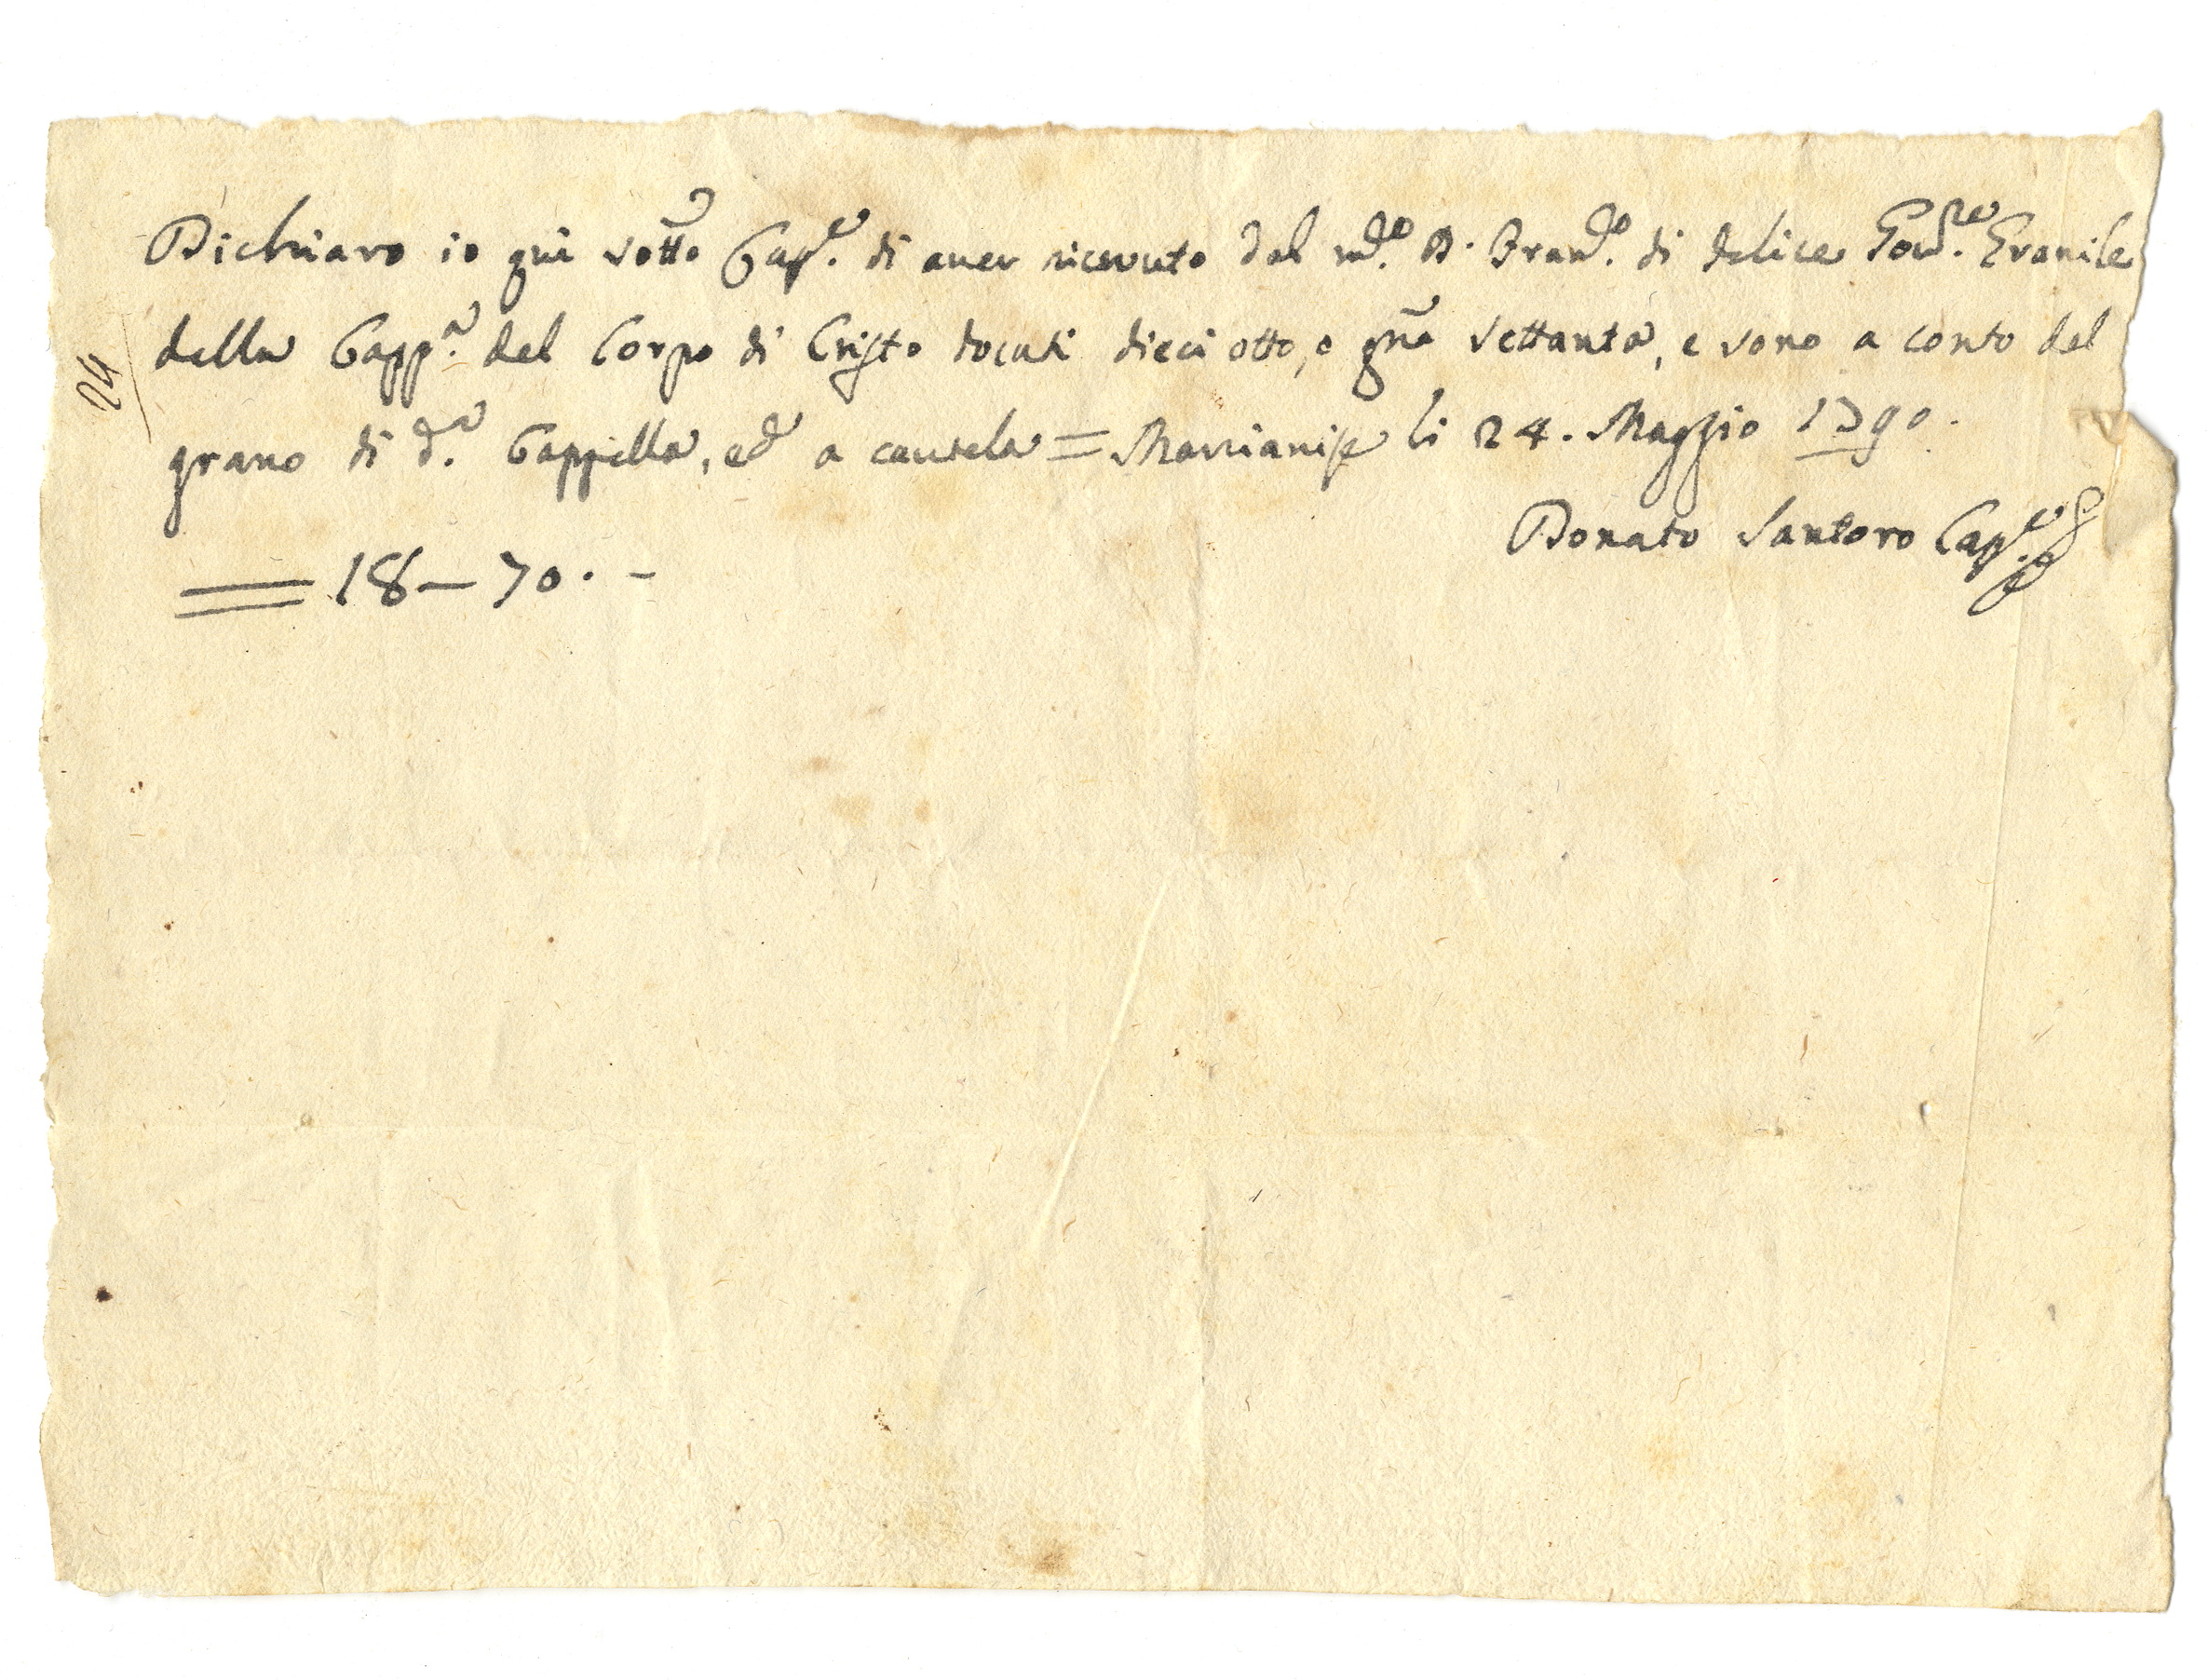 Dichiaro io qui sotto Cap.e di aver ricevuto dal md.o D. Fran.co di Felice Gov.re Granile
della Capp.a del Corpo di Cristo docati dieci otto, e gna settanta, e sono a conto del
grano di d.a Cappella, ed a cautela = Marcianise li 24. Maggio 1790.
Donato Santoro Cap.e
= 18 - 70. -
24